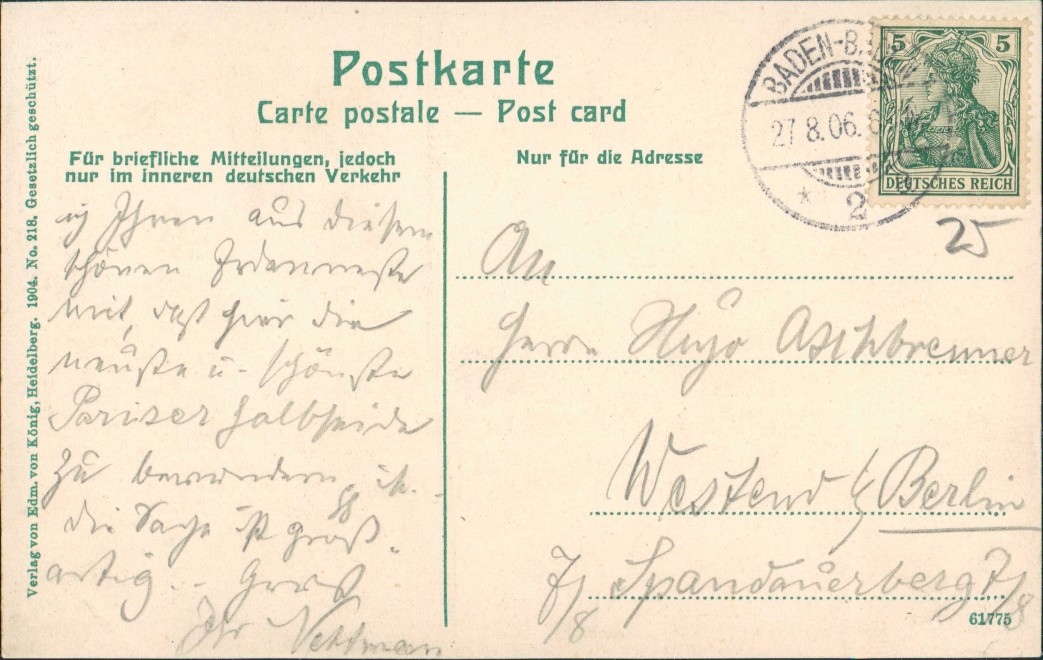 Postkarte
Carte postale — Post card
Für briefliche Mitteilungen, jedoch
nur im inneren deutschen Verkehr
Nur für die Adresse
BADEN-BADEN
27.8.06.
* 2
5 5
DEUTSCHES REICH
25
Verlag von Edm. von König, Heidelberg. 1904. No. 218. Gesetzlich geschützt.
Ihnen aus diesem
schönen Erdenneste
mit, daß hier die
neuste u. schönste
Pariser Halbseide
zu bewundern ist.
die Sache ist groß-
artig. Gruß
Ihr
An
Herrn Hugo Aschbrenner
Westend b/ Berlin
7/8 Spandauerberg 7/8
61775